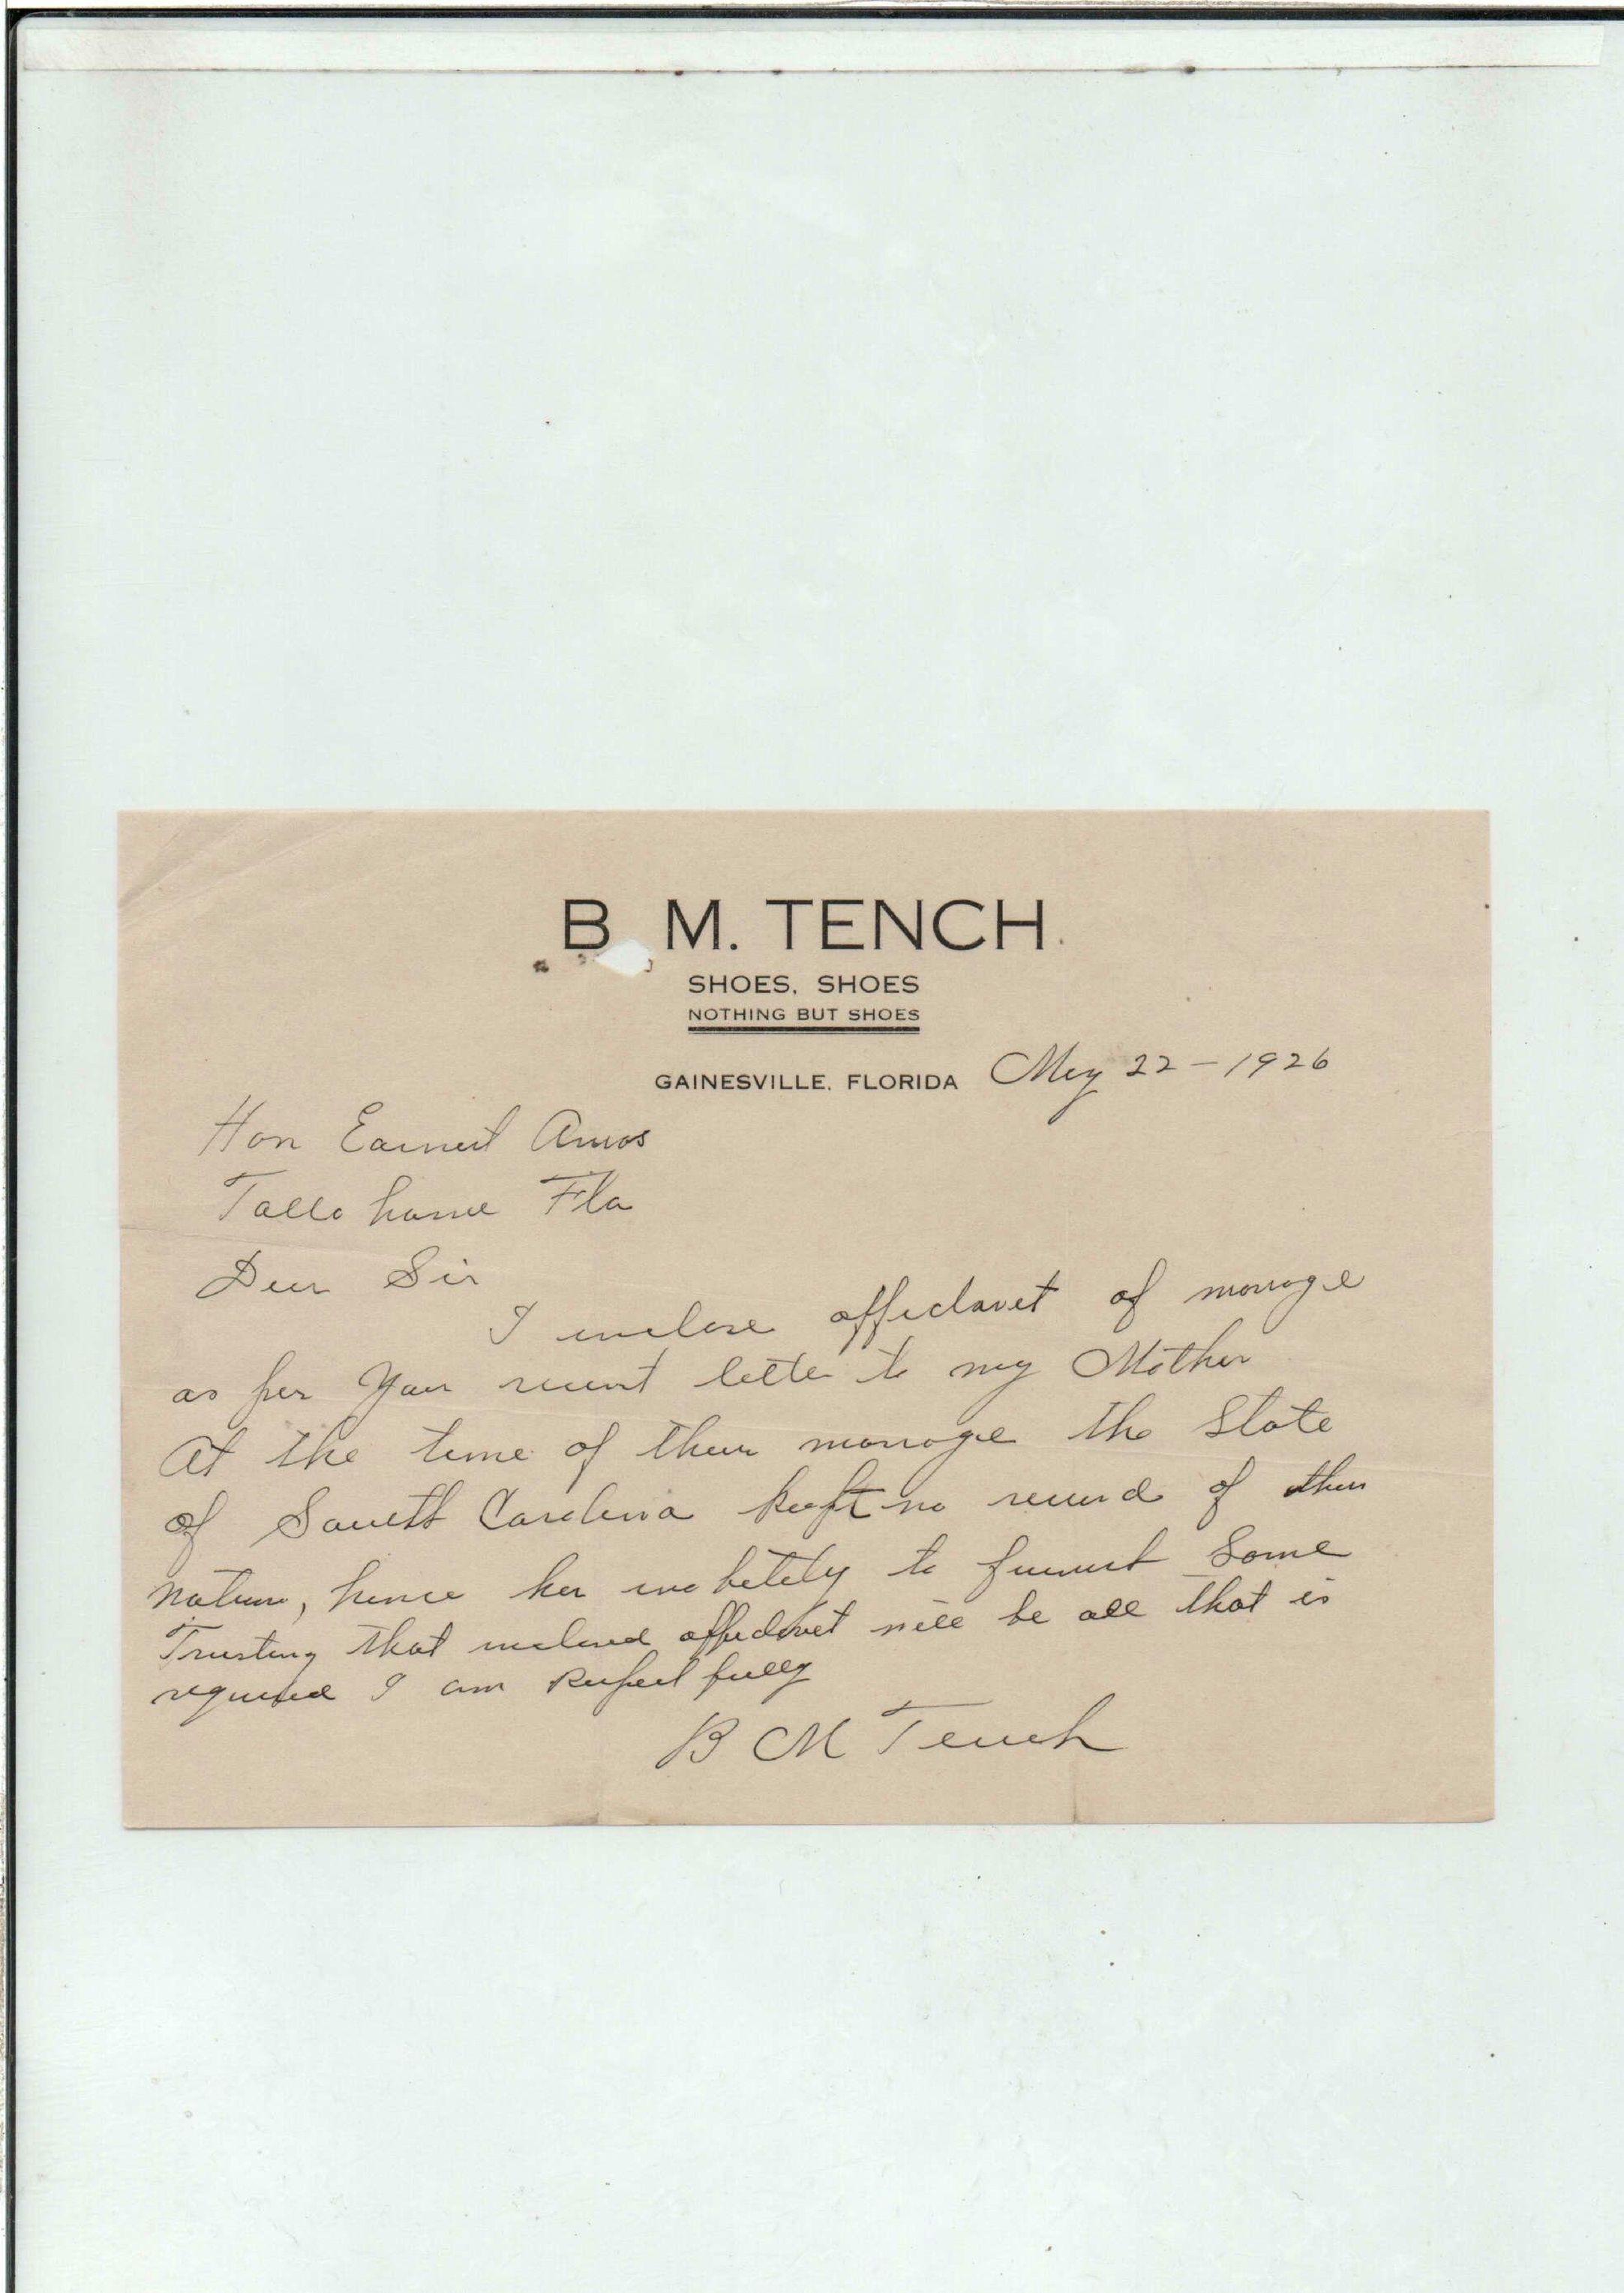 B. M. TENCH
SHOES, SHOES
NOTHING BUT SHOES
GAINESVILLE, FLORIDA May 22 - 1926
Hon Earnest Amos
Tallahassee Fla
Dear Sir
I enclose affidavit of marrage
as per your recent letter to my Mother
At the time of their marrage the State
of South Carolina keept no record of
nature, hence her inability to furnish Same
Trusting that inclosed affidavit will be all that is
required I am Respectfully
B M Tench